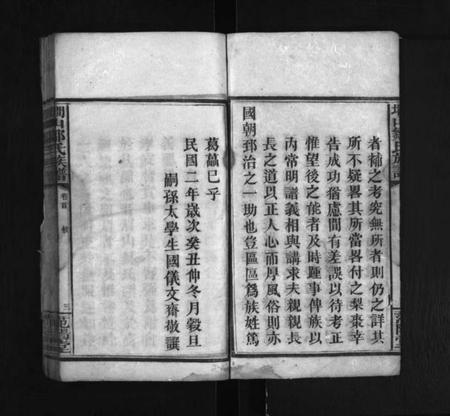 者補之考究無所者則仍之詳其
所不疑畧其所當畧付之梨棗幸
告成功猶慮間有差誤以待考正
惟望後之能者及時踵事俾族以
內常明譜義相與講求夫親親長
長之道以正人心而厚風俗則亦
國朝郅治之一助也豈區區爲族姓爲
葛藟已乎
民國二年歲次癸丑仲冬月穀旦
嗣孫太學生國儀文齋敬譔
鄒氏族譜
卷首
三